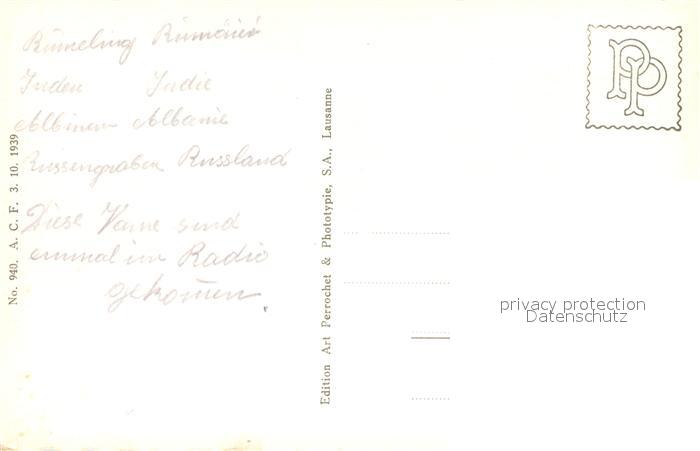 Rümeling Rumänien
Juden Indie
Albinen Albanie
Russengraben Russland
Diese Name sind
einmal im Radio
gekommen
No. 940. A. C. F. 3. 10. 1939
Edition Art Perrochet & Phototypie, S.A., Lausanne
PP
privacy protection
Datenschutz